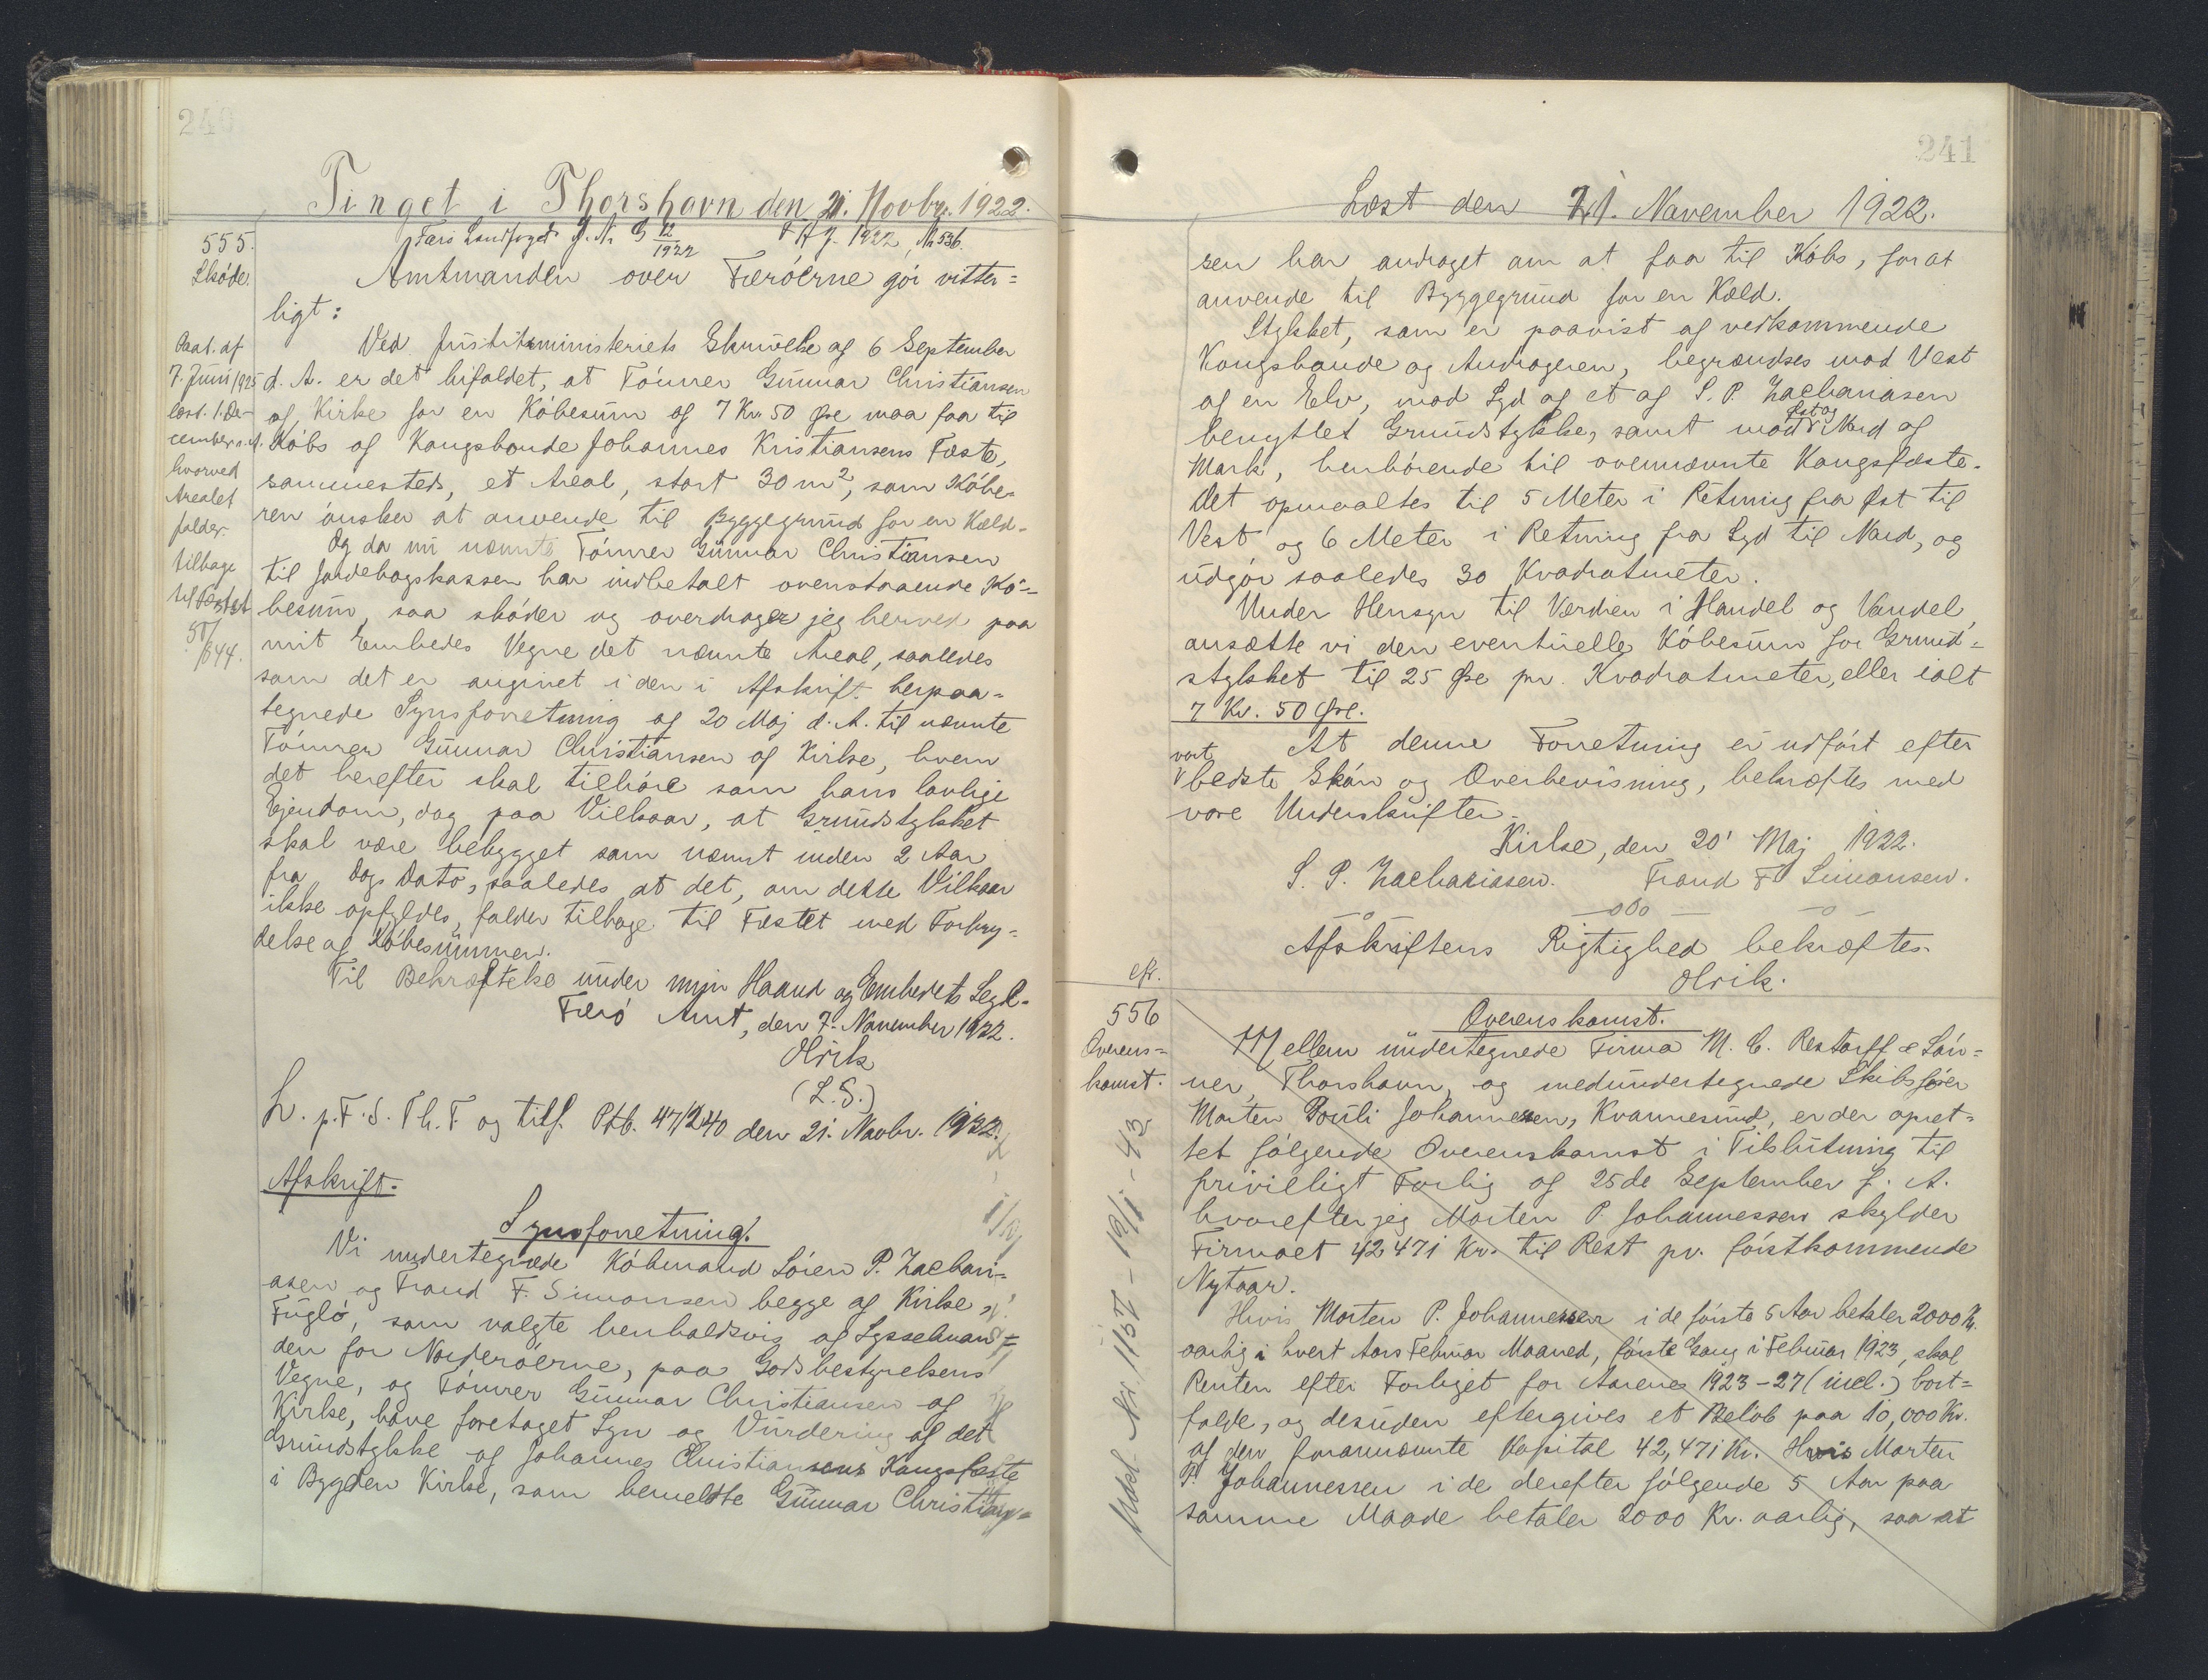 240
Tinget i Thorshavn den 21. Novbr. 1922.
555.
Skøde.
Færø Landfoged J. Nr. G 12/1922 A J. 1922, Nr. 536.
Amtmanden over Færøerne gør vitter=
ligt:
Ved Justitsministeriets Skrivelse af 6 September
d. A. er det bifaldet, at Tømrer Gunnar Christiansen
af Kirke for en Købesum af 7 Kr. 50 Øre maa faa til
Købs af Kongsbonde Johannes Kristiansens Fæste,
sammesteds, et Areal, stort 30 m², som Købe-
ren ønsker at anvende til Byggegrund for en Kæld-
Og da nu nævnte Tømrer Gunnar Christiansen
til Jordebogskassen har indbetalt ovenstaaende Kø-
besum, saa skøder og overdrager jeg herved paa
mit Embedes Vegne det nævnte Areal, saaledes
som det er angivet i den i Afskrift herpaa-
tegnede Synsforretning af 20 Maj d. A. til nævnte
Tømrer Gunnar Christiansen af Kirke, hvem
det herefter skal tilhøre som hans lovlige
Ejendom, dog paa Vilkaar, at Grundstykket
skal være bebygget som nævnt inden 2 Aar
fra Dags Dato, saaledes at det, om dette Vilkaar
ikke opfyldes, falder tilbage til Fæstet med Forbry-
delse af Købesummen.
Til Bekræftelse under min Haand og Embedets Segl.
Færø Amt, den 7. November 1922.
Olrik
(L.S.)
L. p. F. S. Th. T. og tilf. Ptb. 47/240 den 21. Novbr. 1922.
Paat. af
7. Juni 1925
læst. 1. De-
cember s. A.
hvorved
Arealet
falder
tilbage
til Fæstet
50/644.
Afskrift.
Synsforretning.
Vi undertegnede Købmand Søren P. Zachari-
asen og Trond F. Simonsen begge af Kirke,
Fuglø, som valgte henholdsvis af Sysselman=
den for Norderøerne, paa Godsbestyrelsens
Vegne, og Tømrer Gunnar Christiansen af
Kirke, have foretaget Syn og Vurdering af det
Grundstykke af Johannes Christiansens Kongsfæste
i Bygden Kirke, som bemeldte Gunnar Christian-
241
Læst den 21. November 1922.
sen har andraget om at faa til Købs, for at
anvende til Byggegrund for en Kæld.
Stykket, som er paavist af vedkommende
Kongsbonde og Andrageren, begrændses mod Vest
af en Elv, mod Syd af et af S. P. Zachariasen
benyttet Grundstykke, samt mod Øst og Nord af
Mark, henhørende til ovennævnte Kongsfæste.
Det opmaaltes til 5 Meter i Retning fra Øst til
Vest og 6 Meter i Retning fra Syd til Nord, og
udgør saaledes 30 Kvadratmeter.
Under Hensyn til Værdien i Handel og Vandel
ansætte vi den eventuelle Købesum for Grund=
stykket til 25 Øre pr. Kvadratmeter, eller ialt
7 Kr. 50 Øre.
At denne Forretning er udført efter
vort bedste Skøn og Overbevisning, bekræftes med
vore Underskrifter.
Kirke, den 20' Maj 1922.
S. P. Zachariasen. Trond F. Simonsen.
—o— —oOo— —o—
Afskriftens Rigtighed bekræftes.
Olrik.
efr.
556
Overens=
komst.
Overenskomst.
Mellem undertegnede Firma M. C. Restorff & Søn=
ner, Thorshavn, og medundertegnede Skibsfører
Morten Pouli Johannesen, Kvannesund, er der opret=
tet følgende Overenskomst i Tilslutning til
frivilligt Forlig af 25de September f. A.
hvorefter jeg Morten P. Johannessen skylder
Firmaet 42471 Kr. til Rest pr. førstkommende
Nytaar.
Hvis Morten P. Johannessen i de første 5 Aar betaler 2000 Kr.
aarlig i hvert Aars Februar Maaned, første Gang i Februar 1923, skal
Renten efter Forliget for Aarene 1923-27 (incl.) bort=
falde, og desuden eftergives et Beløb paa 10,000 Kr.
af den forannævnte Kapital 42,471 Kr. Hvis Morten
P. Johannessen i de derefter følgende 5 Aar paa
samme Maade betaler 2000 Kr. aarlig, saa at